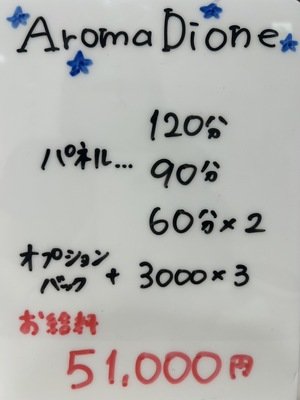 Aroma Dione
120分
パネル... 90分
60分×2
オプション
バック + 3000×3
お給料
51,000円